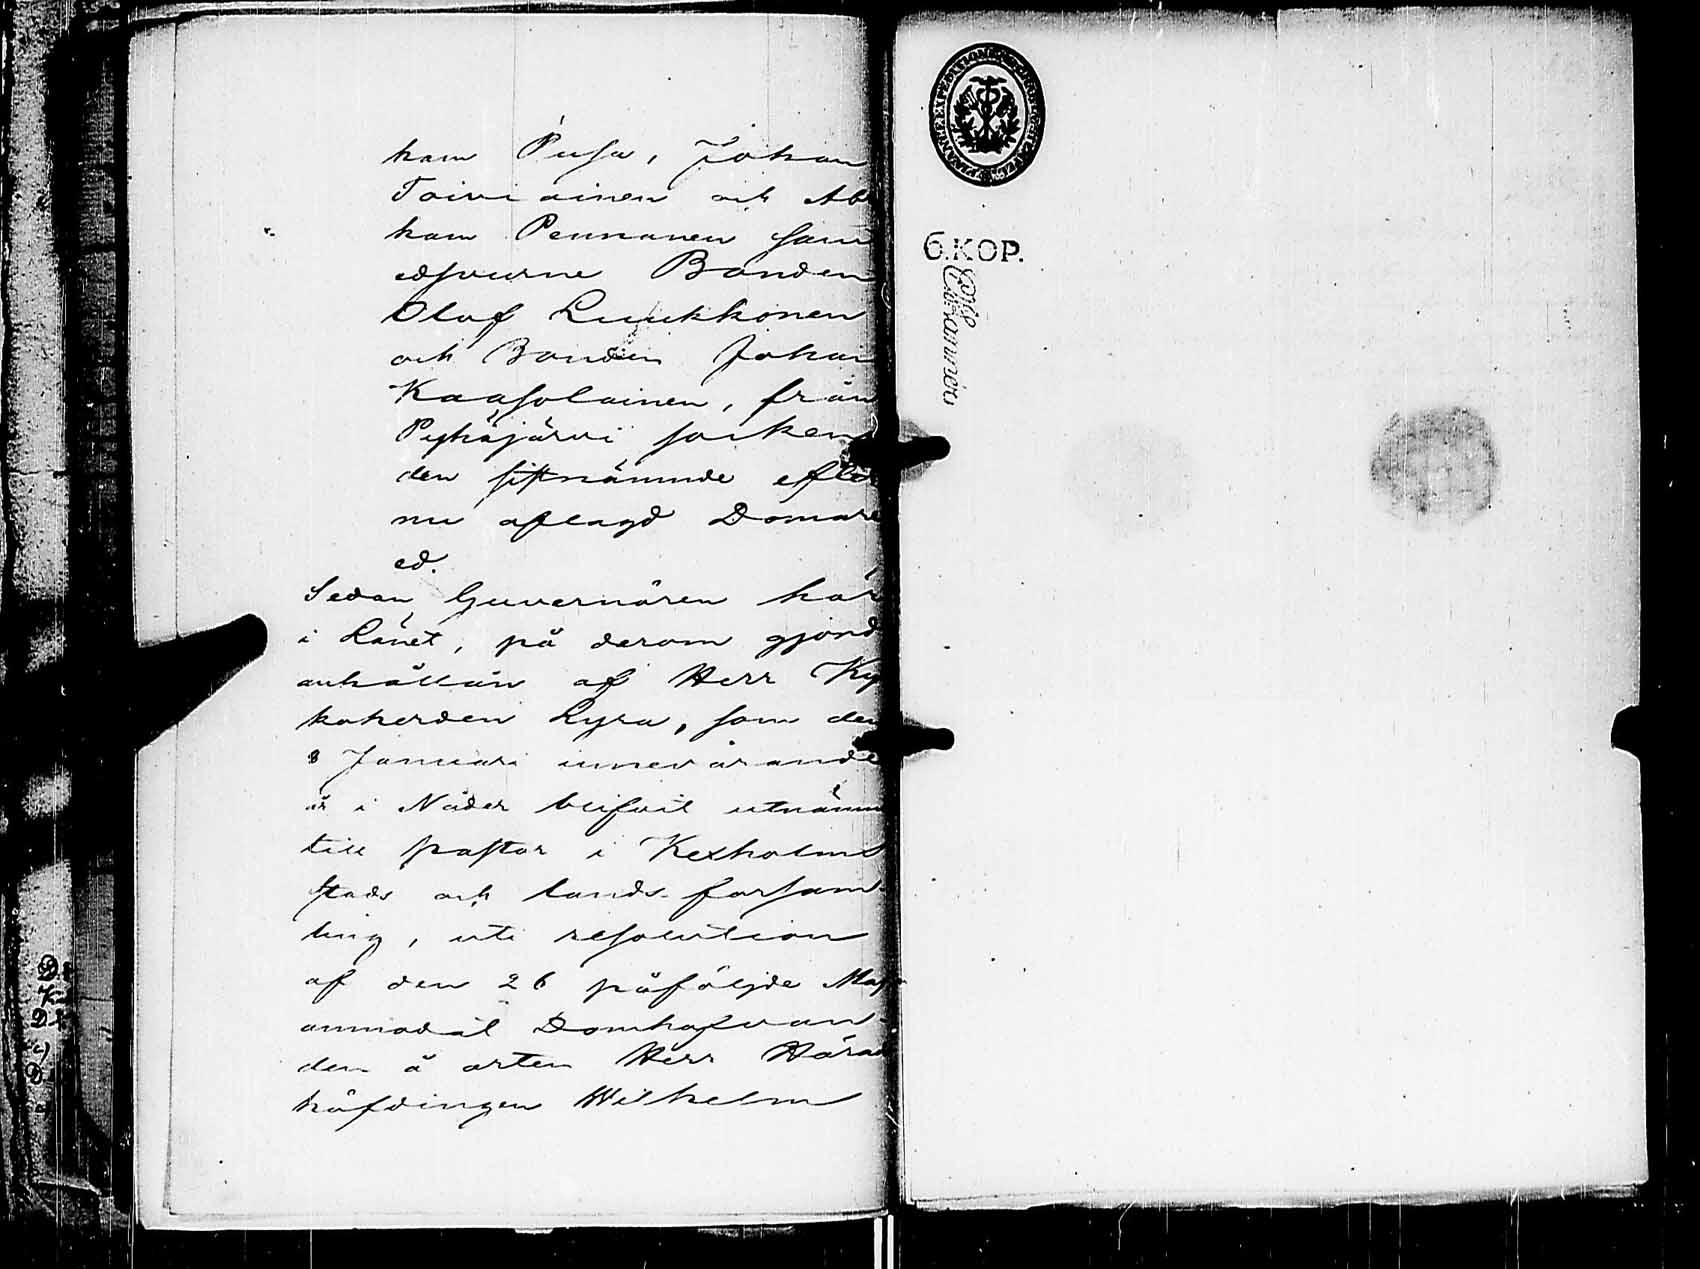 ham Pusa, Johan
Toiviainen och Ab
ham Pennanen sam
edsvurne Bonden
Olof Luukkonen
och Bonden Johan
Kaasolainen, från
Pyhäjärvi socken
den sistnämnde efter
nu aflagd Domare
ed.
Sedan Guvernören här
i Länet, på derom gjord
anhållan af Herr Ky
koherden Lyra, som den
8 Januari innevarande
år i Nåder blifvit utnämn
till pastor i Kexholms
stads och lands-församl
ling, uti resolution
af den 26 påföljde Maj
anmodat Domhafvan-
den å orten Herr Härad
höfdingen Wilhelm
6.KOP.